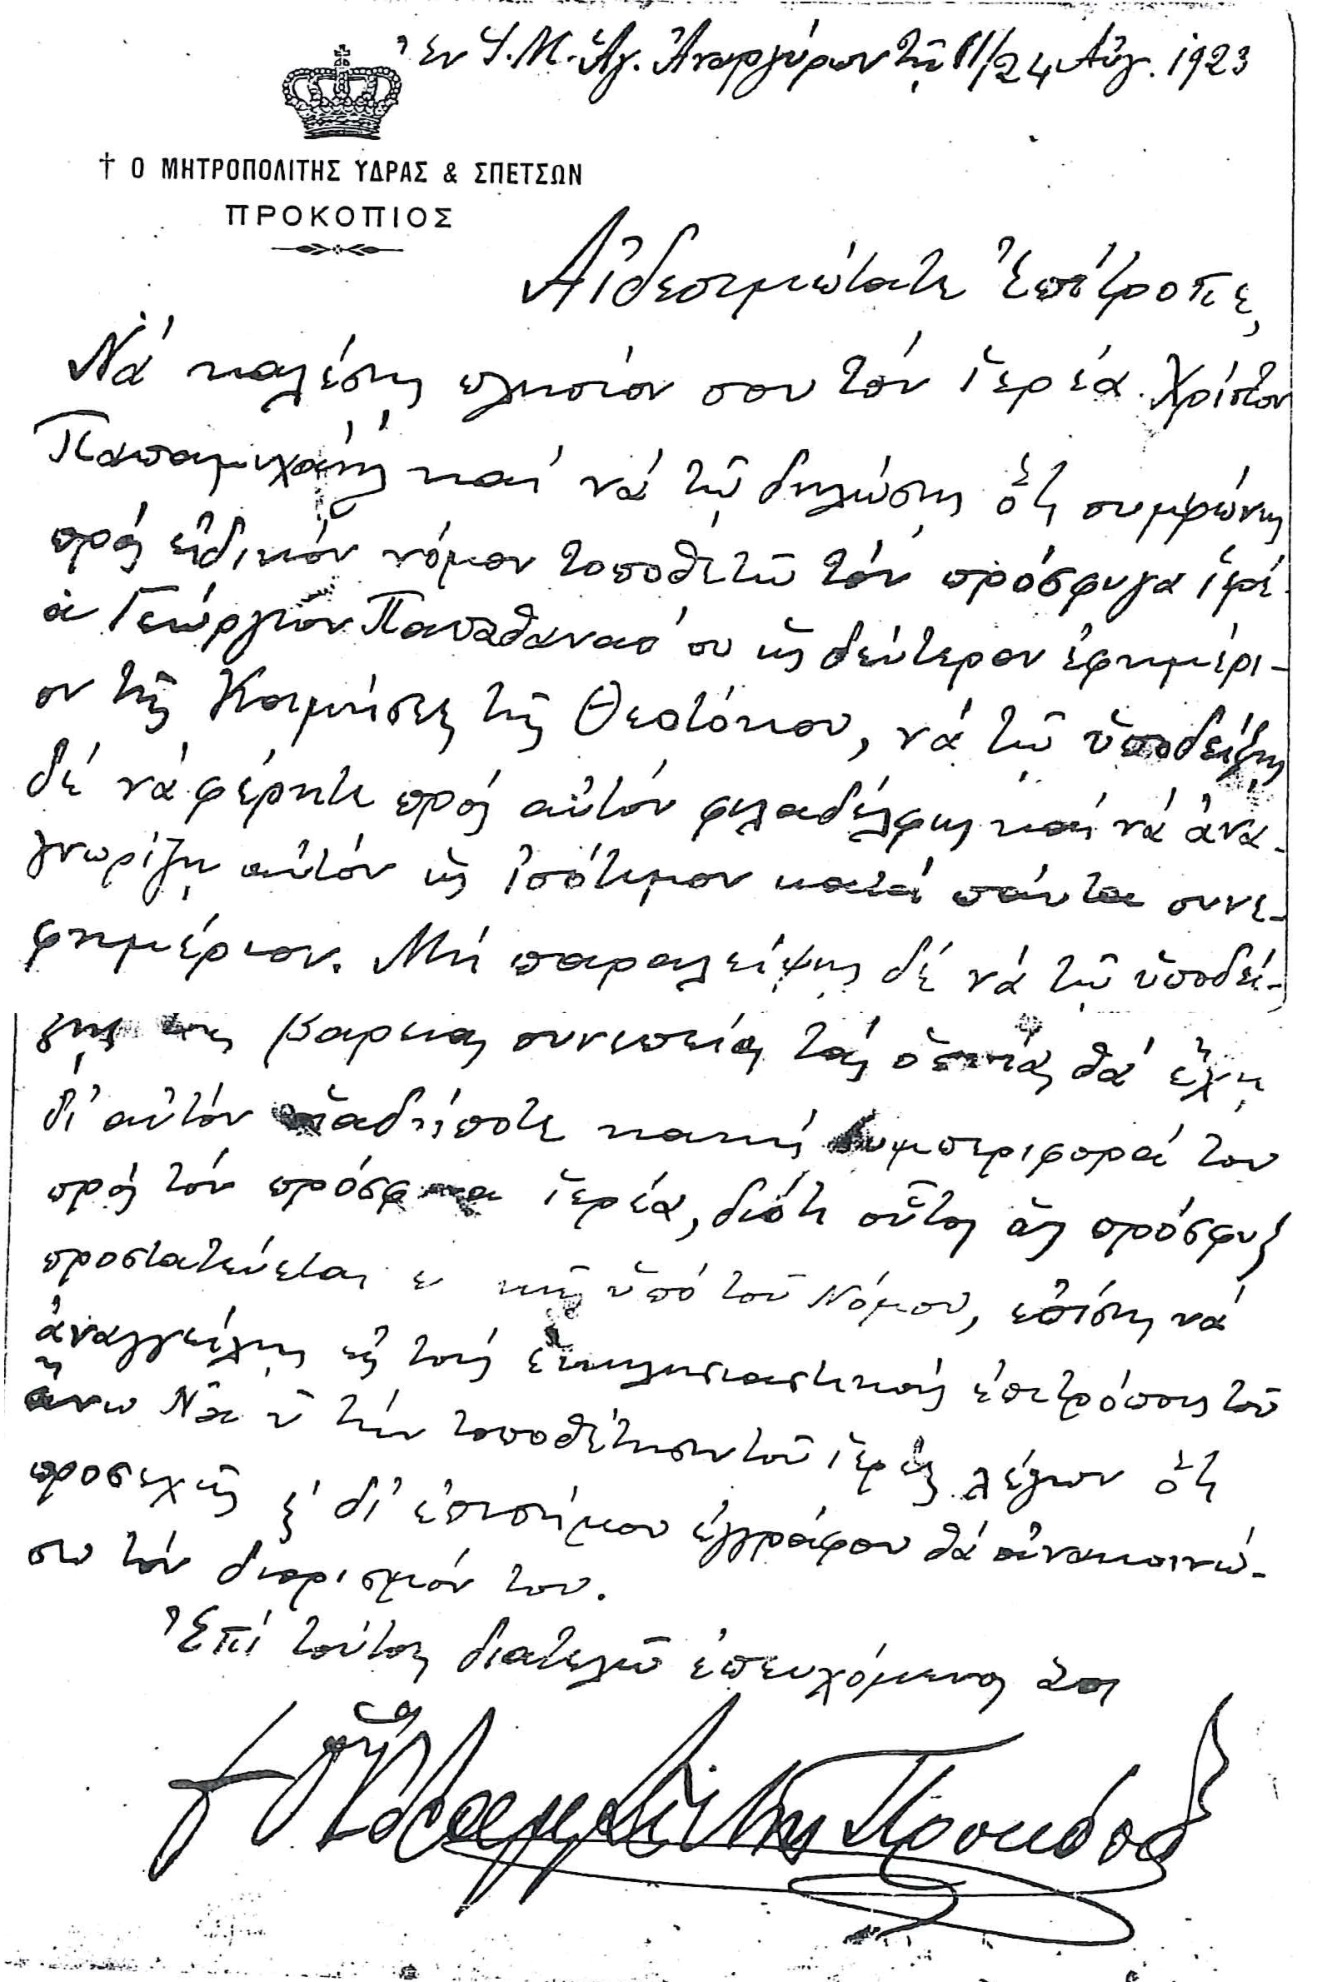 Ἐν Ἱ. Μ. Ἁγ. Ἀναργύρων τῇ 11/24 Αὐγ. 1923
† Ο ΜΗΤΡΟΠΟΛΙΤΗΣ ΥΔΡΑΣ & ΣΠΕΤΣΩΝ
ΠΡΟΚΟΠΙΟΣ
Αἰδεσιμώτατε Ἐπίτροπε,
Νά καλέσῃς πλησίον σου τόν ἱερέα Χρίστον
Παπαμιχαήλ καί νά τῷ δηλώσῃς ὅτι συμφώνως
πρός εἰδικόν νόμον τοποθετῶ τόν πρόσφυγα ἱερέ-
α Γεώργιον Παπαθανασίου ὡς δεύτερον ἐφημέρι-
ον τῆς Κοιμήσεως τῆς Θεοτόκου, νά τῷ ὑποδείξῃς
δέ νά φέρηται πρός αὐτόν φιλαδέλφως καί νά ἀνα-
γνωρίζῃ αὐτόν ὡς ἰσότιμον κατά πάντα συνε-
φημέριον. Μή παραλείψῃς δέ νά τῷ ὑποδεί-
ξῃς τάς βαρείας συνεπείας τάς ὁποίας θά ἔχῃ
δι' αὐτόν οἱαδήποτε κακή συμπεριφορά του
πρός τόν πρόσφυγα ἱερέα, διότι οὗτος ὡς πρόσφυξ
προστατεύεται ὑπό τοῦ Νόμου, ἐπίσης νά
ἀναγγείλῃς εἰς τούς ἐκκλησιαστικούς ἐπιτρόπους τοῦ
ἄνω Ναοῦ τήν τοποθέτησιν τοῦ ἱερέως λέγων ὅτι
προσεχῶς δι' ἐπισήμου ἐγγράφου θά ἀνακοινώ-
σω τόν διορισμόν του.
Ἐπί τούτοις διατελῶ ἐπευχόμενος
† Ὁ Ὕδρας Προκόπιος